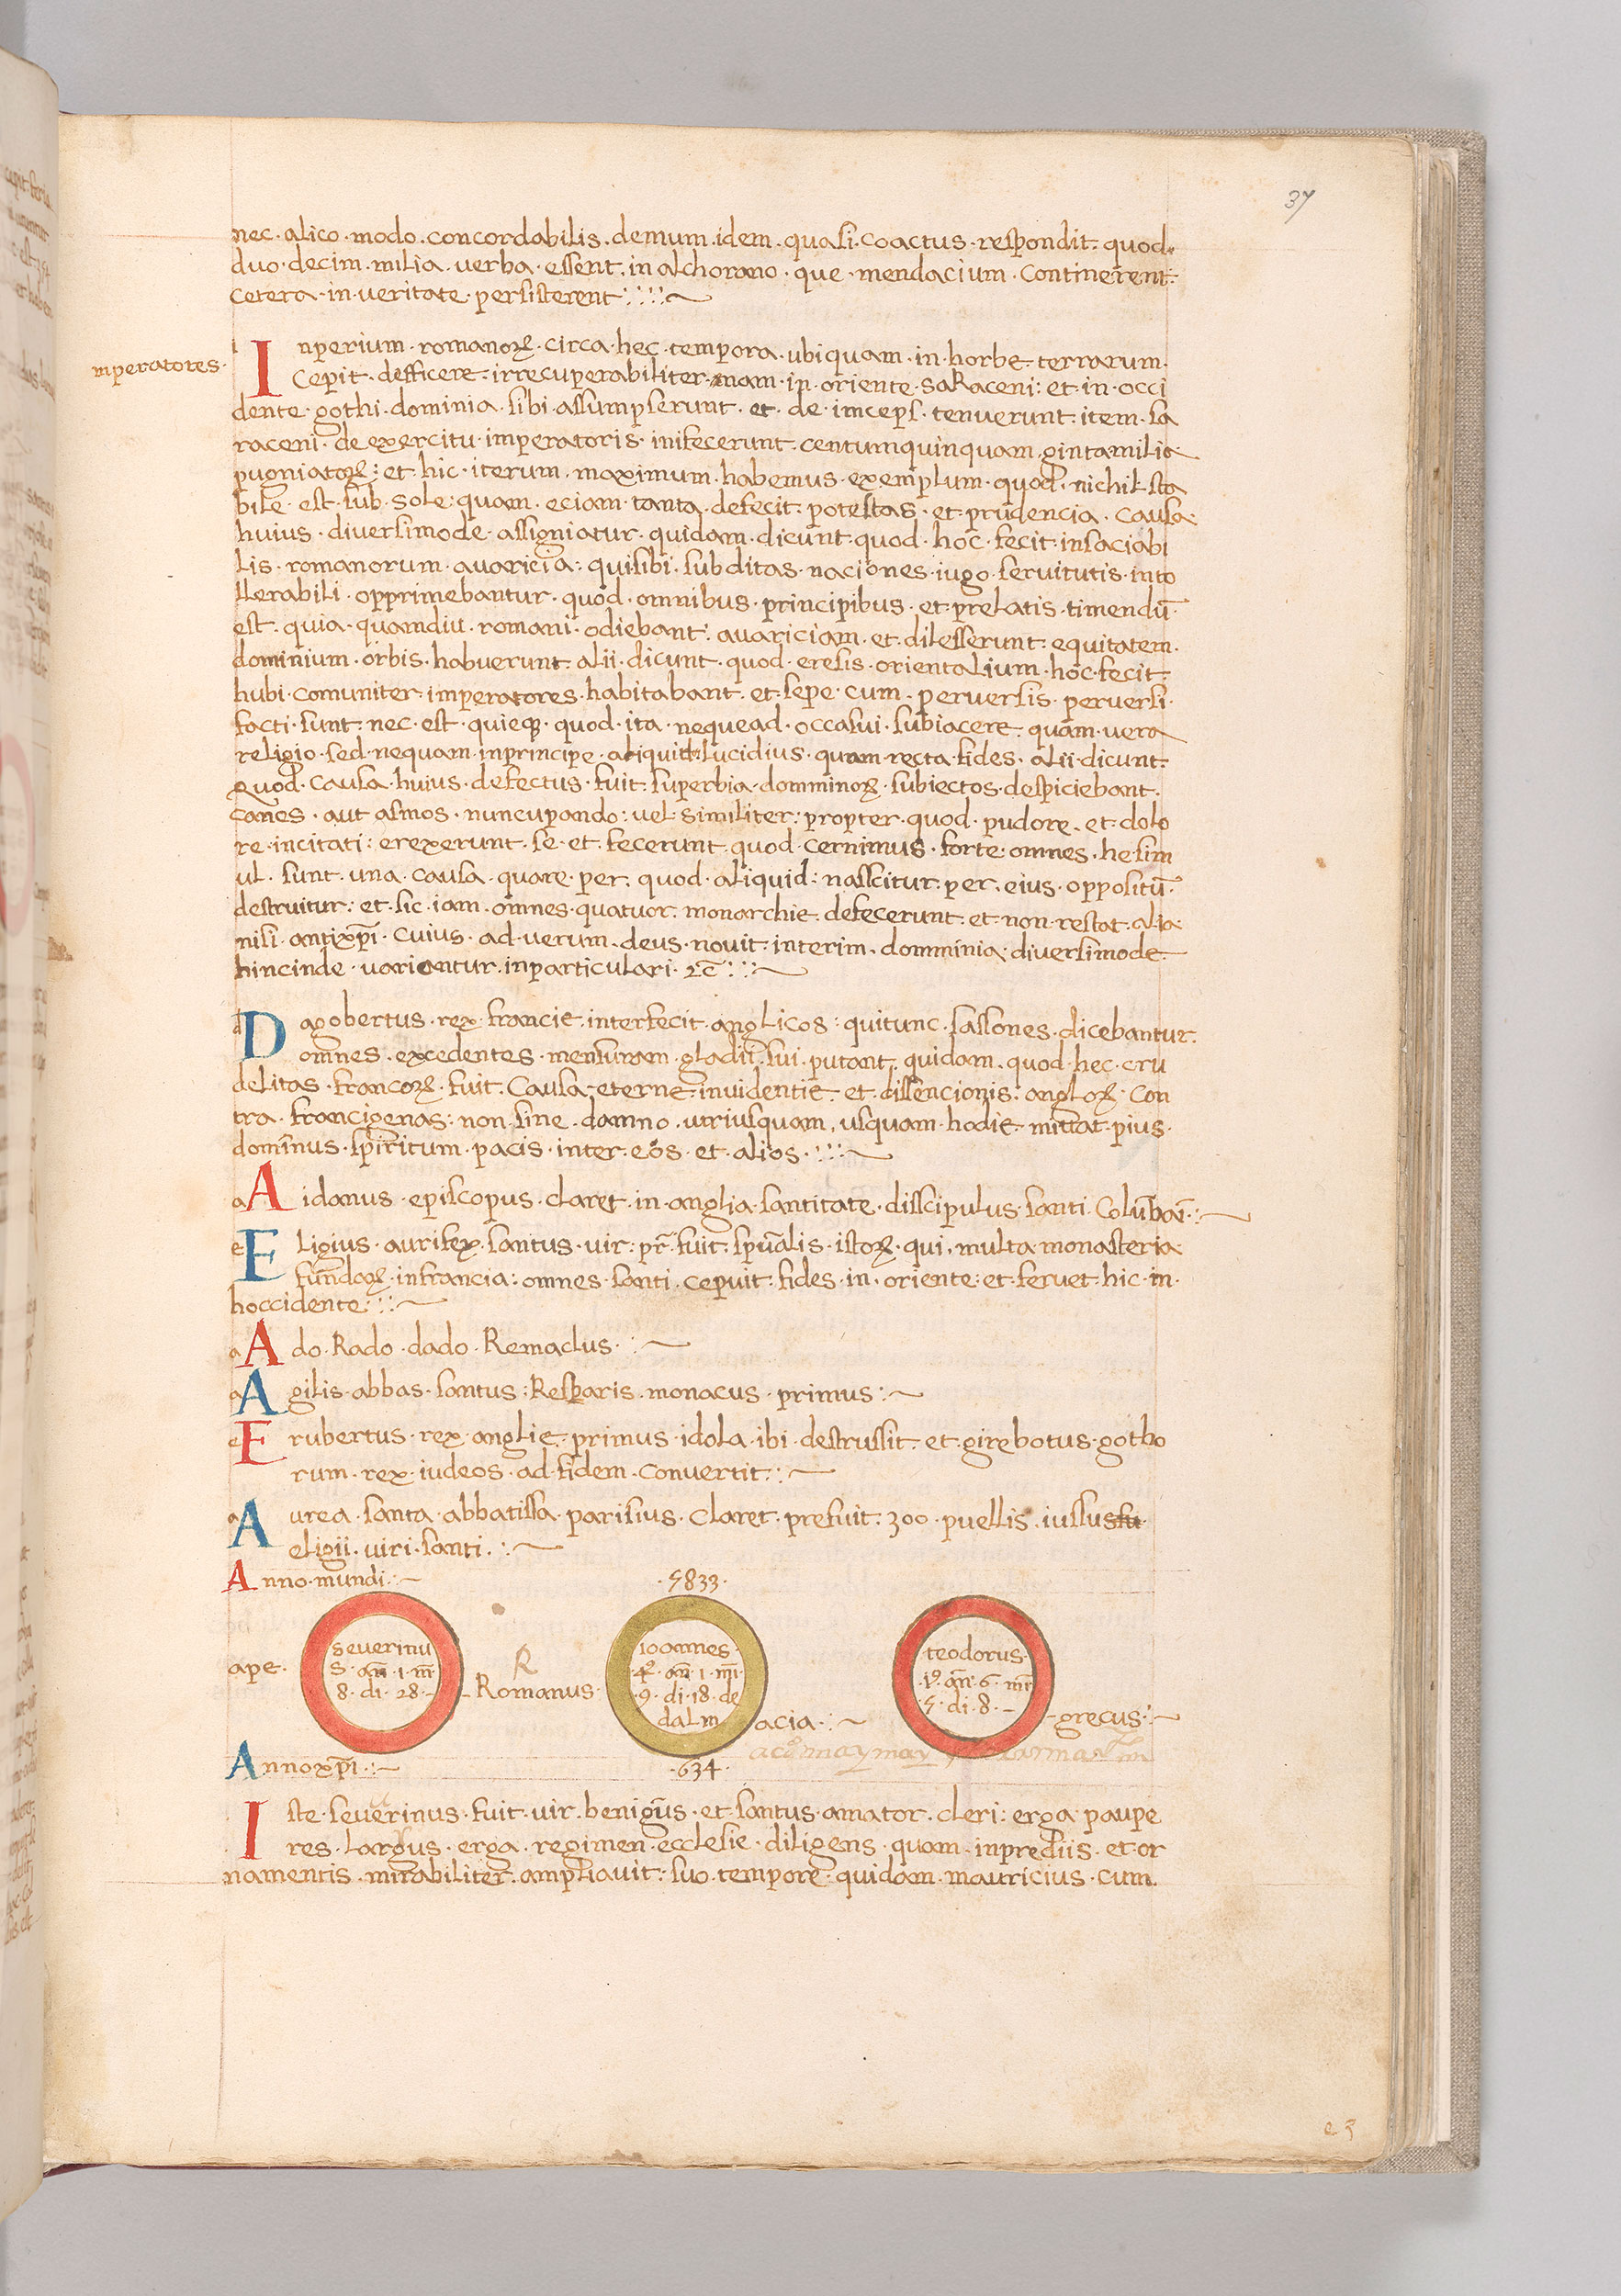 37
nec · alico · modo · concordabilis · demum · idem · quasi · coactus · respondit · quod ·
duo · decim · milia · verba · essent · in alchorano · que · mendacium · continerent ·
cetera · in · veritate · persisterent
mperatores ·
I nperium · romanoꝝ · circa · hec · tempora · ubiquam · in · horbe · terrarum ·
cepit · defficere · irrecuperabiliter · nam · in · oriente · saRaceni : et · in · occi
dente · gothi · dominia · sibi · assumpserunt · et · de · imceps · tenuerunt · item · sa
raceni · de exercitu · imperatoris · inifecerunt · centumquinquam · gintamilia
pugniatoꝝ : et · hic · iterum · maximum · habemus · exemplum · quod · nichil · sta
bile · est · sub · sole : quam · eciam · tanta · defecit · potestas · et · prudencia · causa ·
huius · diversimode · assigniatur · quidam · dicunt · quod · hoc · fecit · insaciabi
lis · romanorum · avaricia : quisibi · subditas · naciones · iugo · servitutis · into
llerabili · opprimebantur · quod · omnibus · principibus · et · prelatis · timendū ·
est · quia · quamdiu · romani · odiebant · avariciam · et · dilesserunt · equitatem ·
dominium · orbis · habuerunt · alii · dicunt · quod · eresis · orientalium · hoc · fecit ·
hubi · comuniter · imperatores · habitabant · et · sepe · cum · perversis · perversi ·
facti · sunt · nec · est · quicq̃ · quod · ita · nequead · occasui · subiacere · quam · vera
religio · sed · nequam · inprincipe · aliquid · lucidius · quam · recta · fides · alii · dicunt ·
quod · causa · huius · defectus · fuit · superbia · domminoꝝ · subiectos · despiciebant ·
canes · aut · asinos · nuncupando : vel · similiter : propter · quod · pudore · et · dolo
re · incitati : erexerunt · se · et · fecerunt · quod · cernimus · forte · omnes · he sim
ul · sunt · una · causa · quare · per · quod · aliquid : nasscitur · per · eius · oppositū ·
destruitur : et · sic · iam · omnes · quatuor · monarchie · defecerunt · et · non · restat · alia ·
nisi · antixp̄i · cuius · ad · verum · deus · novit · interim · domminia · diversimode
hincinde · variantur · inparticulari · ⁊c̄
D agobertus · rex · francie · interfecit · anglicos : quitunc · sassones · dicebantur ·
omnes · excedentes · mensuram · gladii · sui · putant · quidam · quod · hec · cru
delitas · francoꝝ · fuit · causa · eterne · invidentie · et · dissencionis : angloꝝ · con
tra · francigenas : non · sine · damno · utriusquam · usquam · hodie · mittat · pius ·
dominus · spiritum · pacis · inter · eos · et · alios ·
A idanus · episcopus · claret · in · anglia · santitate · disscipulus · santi · Colūbāi ·
E ligius · aurifex · santus · vir : pr̄ · fuit · spūalis · istoꝝ · qui · multa · monasteria
fundoꝝ · infrancia : omnes · santi · cepuit · fides · in · oriente · et · feruet · hic · in ·
hoccidente
A do · Rado · dado · Remaclus ·
A gilis · abbas · santus : Resparis · monacus · primus :
E rubertus · rex · anglie · primus · idola · ibi · destrussit · et · girebotus · gotho
rum · rex · iudeos · ad · fidem · convertit ·
A urea · santa · abbatissa · parisius · claret · prefuit · 300 · puellis · iussus
eligii · viri · santi ·
Anno · mundi · · 5833 ·
ape ·
severinu
s · an̄ · 1 · m̄
8 · di · 28 ·
R
Romanus ·
ioannes ·
4º · an̄ · 1 · m̄i
· 9 · di · 18 · de
dalm
acia ·
teodorus ·
· 1º · an̄ · 6 · m̄
· 5 · di · 8 ·
grecus ·
Annoxp̄i · · 634 ·
I ste · severinus · fuit · vir · benignus · et · santus · amator · cleri : erga · paupe
res · largus · erga · regimen · ecclesie · diligens · quam · inprediis · et · or
namentis · mirabiliter · ampliavit : suo · tempore · quidam · mauricius · cum ·
e 3